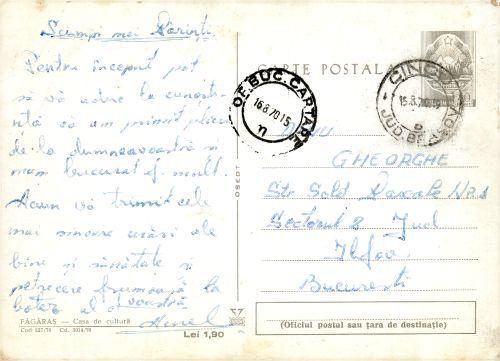 Scumpii mei Părinți
Pentru început pot
să vă aduc la cunoști-
ință că am primit plicu
de la dumneavoastră și
mam bucurat f. mult.
Acum vă trimit cele
mai sincere urări de
bine și sănătate și
petrecere frumoasă la
botez al
voastră
Aurel
FĂGĂRAȘ — Casa de cultură
Cod 527/70 Cd. 3014/70
Lei 1,90
OSEDT
CARTE POSTALA
OF. BUC. CARTARE
16.8.70.15
CINCU
15.8.70
JUD. BRAȘOV
GHEORGHE
Str Sold Pascale Nr.1
Sectorul 8 Jud
Ilfov
București
(Oficiul postal sau țara de destinație)